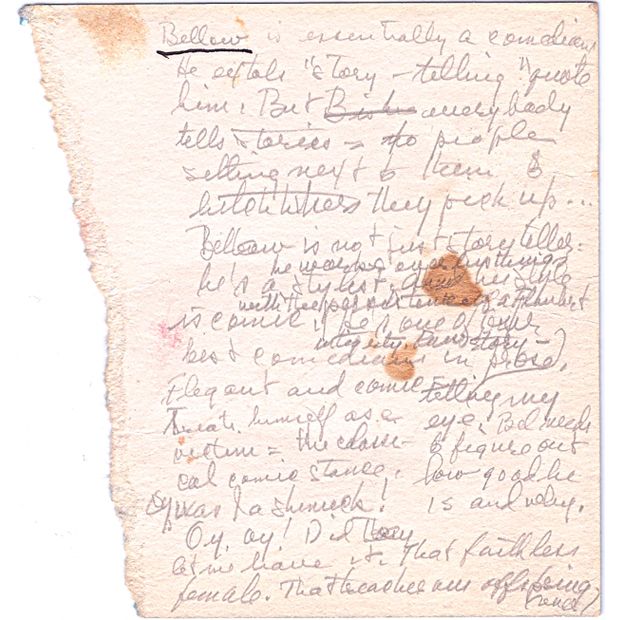 Bellow is essentially a comedian
He extols "story-telling" quote
him: But everybody
tells stories to people
sitting next to them &
hitchhikers they pick up...
Bellow is not just story teller:
he works over his things
he's a stylist, his style
with the persistence of a Flaubert
is comic, he's one of our
integrity. story-
best comedians in prose,
Elegant and comic telling my
Treats himself as a eye. Bel needs
victim = the classi- to figure out
cal comic stance. how good he
Oy was I a shmuck! is and why.
Oy, oy! Did they
let me have it. That faithless
female. That offspring